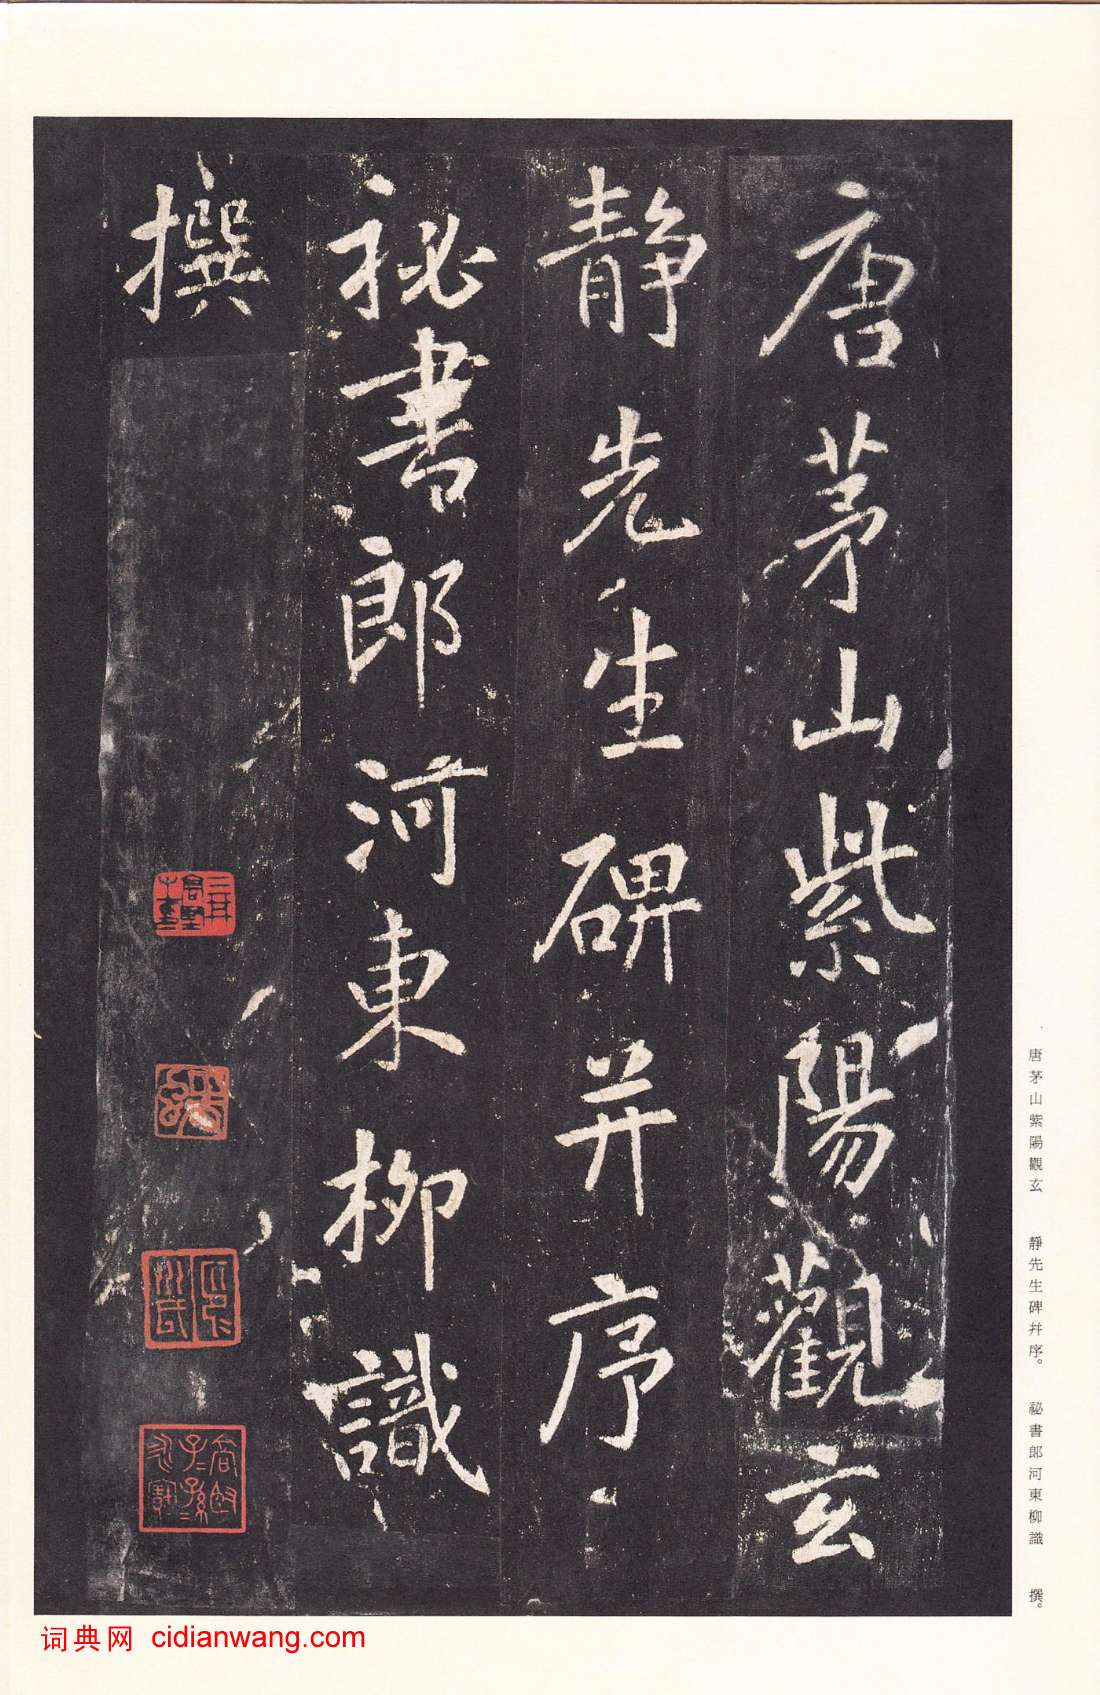 唐茅山紫陽觀玄
靜先生碑并序
祕書郎河東柳識
撰
唐茅山紫陽觀玄 靜先生碑幷序。 祕書郎河東柳識 撰。
词典网 cidianwang.com